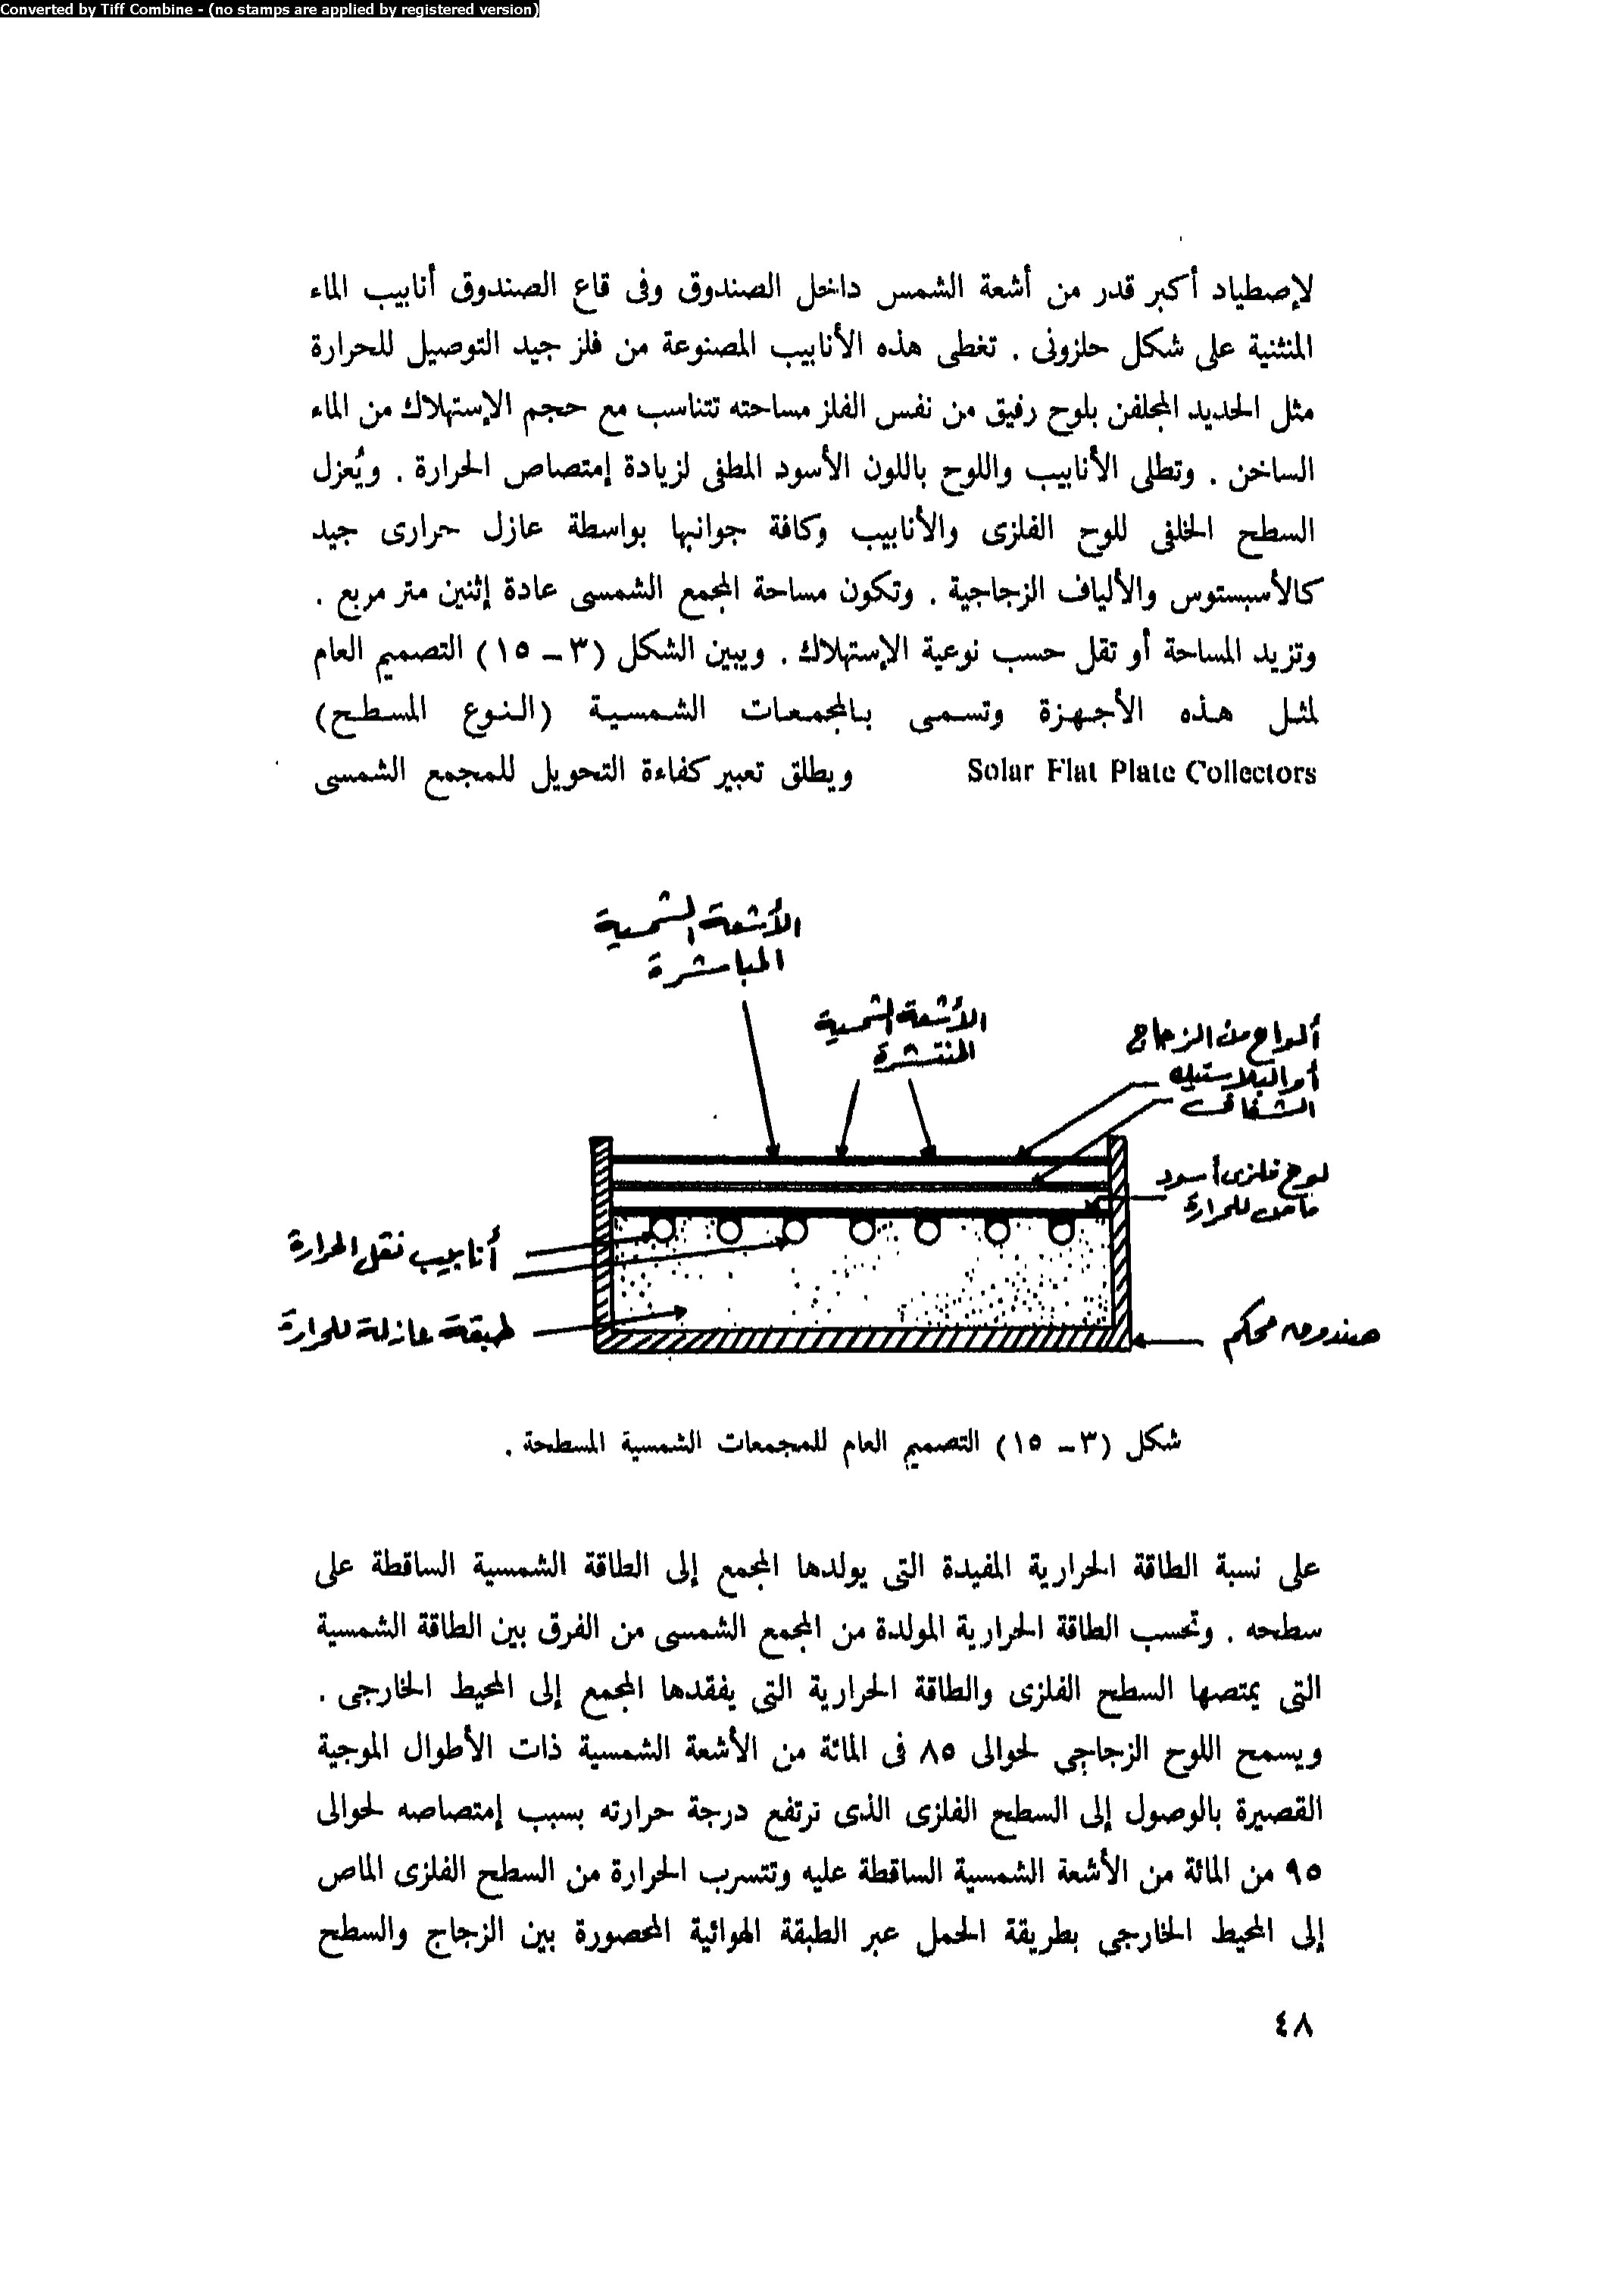 Converted by Tiff Combine - (no stamps are applied by registered version)
لإصطياد أكبر قدر من أشعة الشمس داخل الصندوق وفى قاع الصندوق أنابيب الماء
المنثنية على شكل حلزونى . تغطى هذه الأنابيب المصنوعة من فلز جيد التوصيل للحرارة
مثل الحديد المجلفن بلوح رفيق من نفس الفلز مساحته تتناسب مع حجم الإستهلاك من الماء
الساخن . وتطلى الأنابيب واللوح باللون الأسود المطفى لزيادة إمتصاص الحرارة . ويُعزل
السطح الخلفى للوح الفلزى والأنابيب وكافة جوانبها بواسطة عازل حرارى جيد
كالأسبستوس والألياف الزجاجية . وتكون مساحة المجمع الشمسى عادة إثنين متر مربع .
وتزيد المساحة أو تقل حسب نوعية الإستهلاك . ويبين الشكل (٣ – ١٥) التصميم العام
لمثل هذه الأجهزة وتسمى بالمجمعات الشمسية (النوع المسطح)
Solar Flat Plate Collectors ويطلق تعبير كفاءة التحويل للمجمع الشمسى
الأشعة الشمسية
المباشرة
الأشعة الشمسية
المنتشرة
ألواح من الزجاج
أو البلاستيك
الشفاف
لوح فلزى أسود
ماص للحرارة
أنابيب نقل الحرارة
طبقة عازلة للحرارة
صندوق محكم
شكل (٣ – ١٥) التصميم العام للمجمعات الشمسية المسطحة .
على نسبة الطاقة الحرارية المفيدة التى يولدها المجمع إلى الطاقة الشمسية الساقطة على
سطحه . وتحسب الطاقة الحرارية المولدة من المجمع الشمسى من الفرق بين الطاقة الشمسية
التى يمتصها السطح الفلزى والطاقة الحرارية التى يفقدها المجمع إلى المحيط الخارجى .
ويسمح اللوح الزجاجى لحوالى ٨٥ فى المائة من الأشعة الشمسية ذات الأطوال الموجية
القصيرة بالوصول إلى السطح الفلزى الذى ترتفع درجة حرارته بسبب إمتصاصه لحوالى
٩٥ من المائة من الأشعة الشمسية الساقطة عليه وتتسرب الحرارة من السطح الفلزى الماص
إلى المحيط الخارجى بطريقة الحمل عبر الطبقة الهوائية المحصورة بين الزجاج والسطح
٤٨